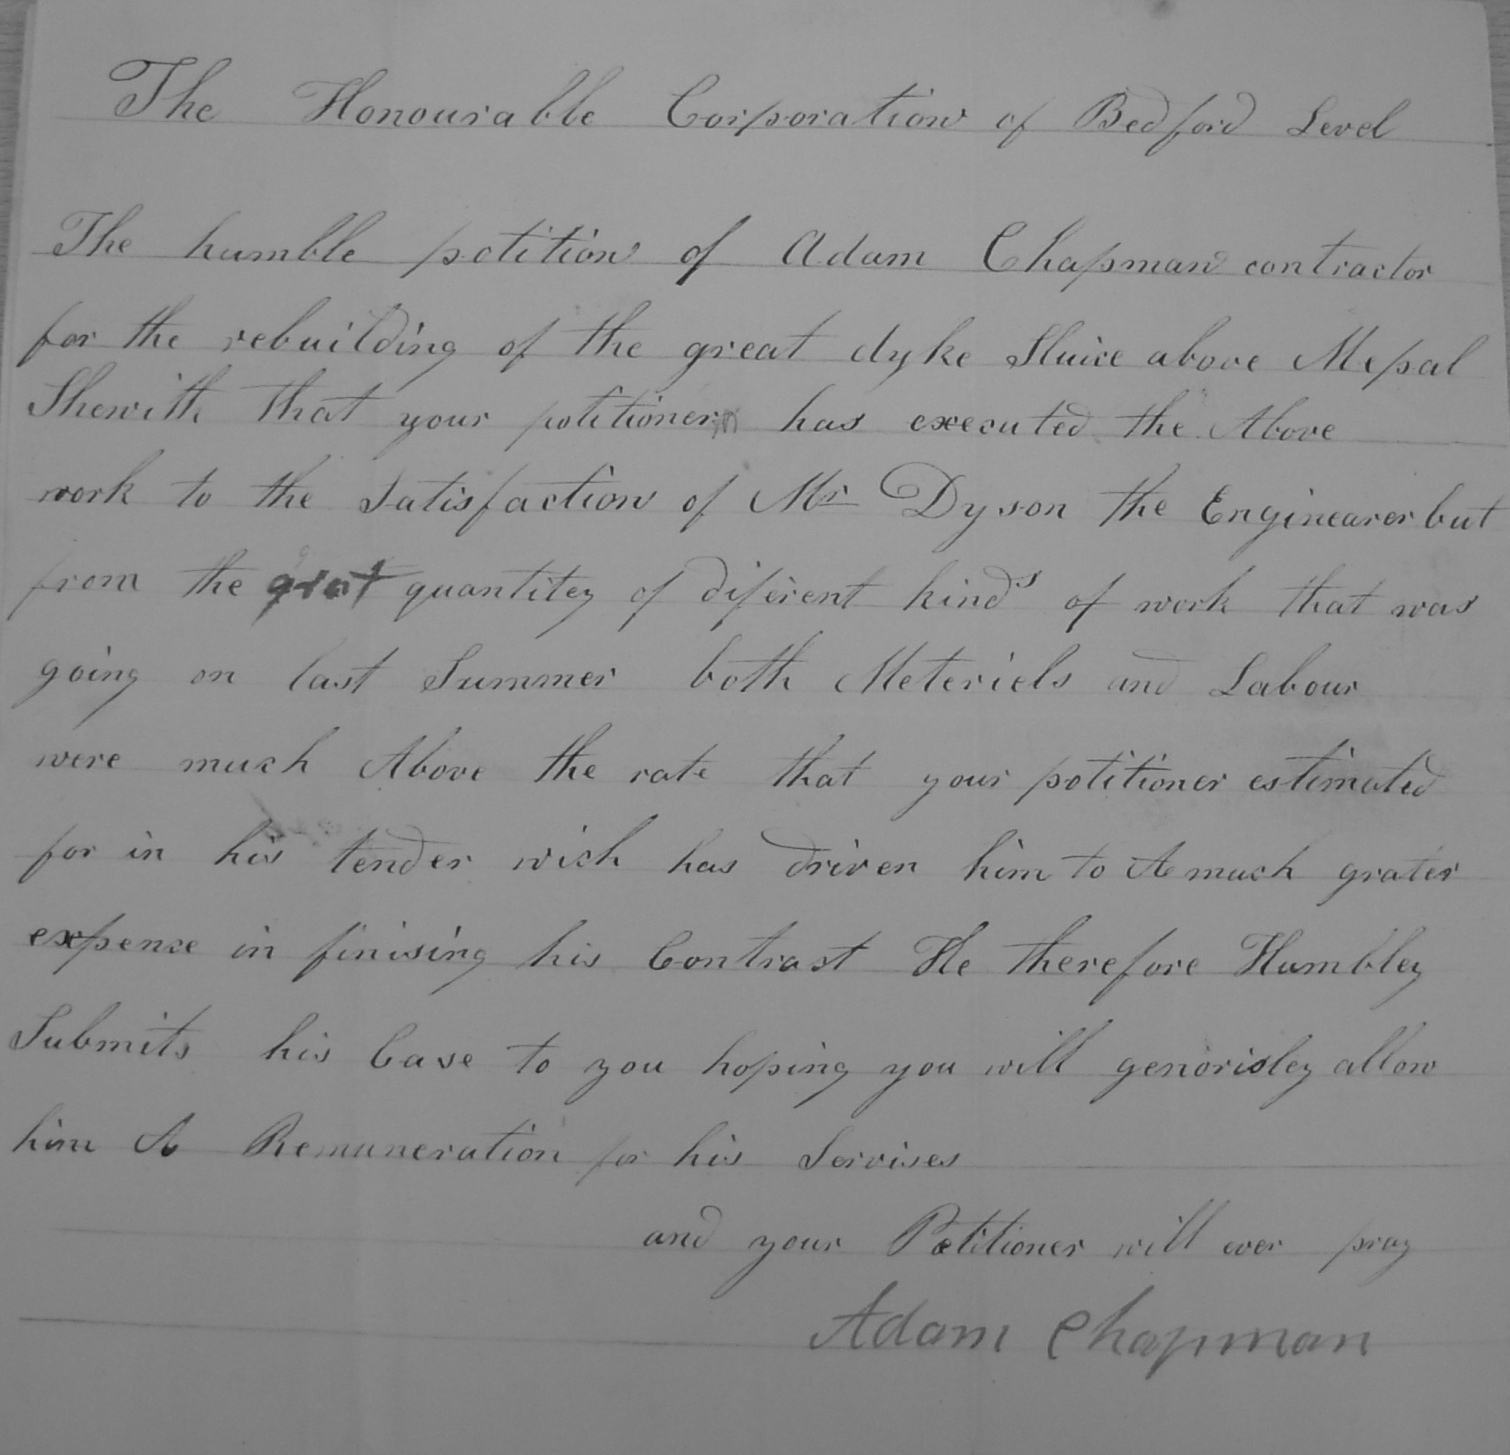 The Honourable Corporation of Bedford Level
The humble petition of Adam Chapman contractor
for the rebuilding of the great dyke Sluice above Mepal
Shewith that your petitioner has executed the Above
work to the Satisfaction of Mr Dyson the Enginearer but
from the grat quantitey of diferent kinds of work that was
going on last Summer both Meteriels and Labour
were much Above the rate that your petitioner estimated
for in his tender wich has driven him to A much grater
expence in finising his Contrast He therefore Humbley
Submits his Case to you hoping you will genorisley allow
him A Remuneration for his Servises
and your Petitioner will ever pray
Adam Chapman